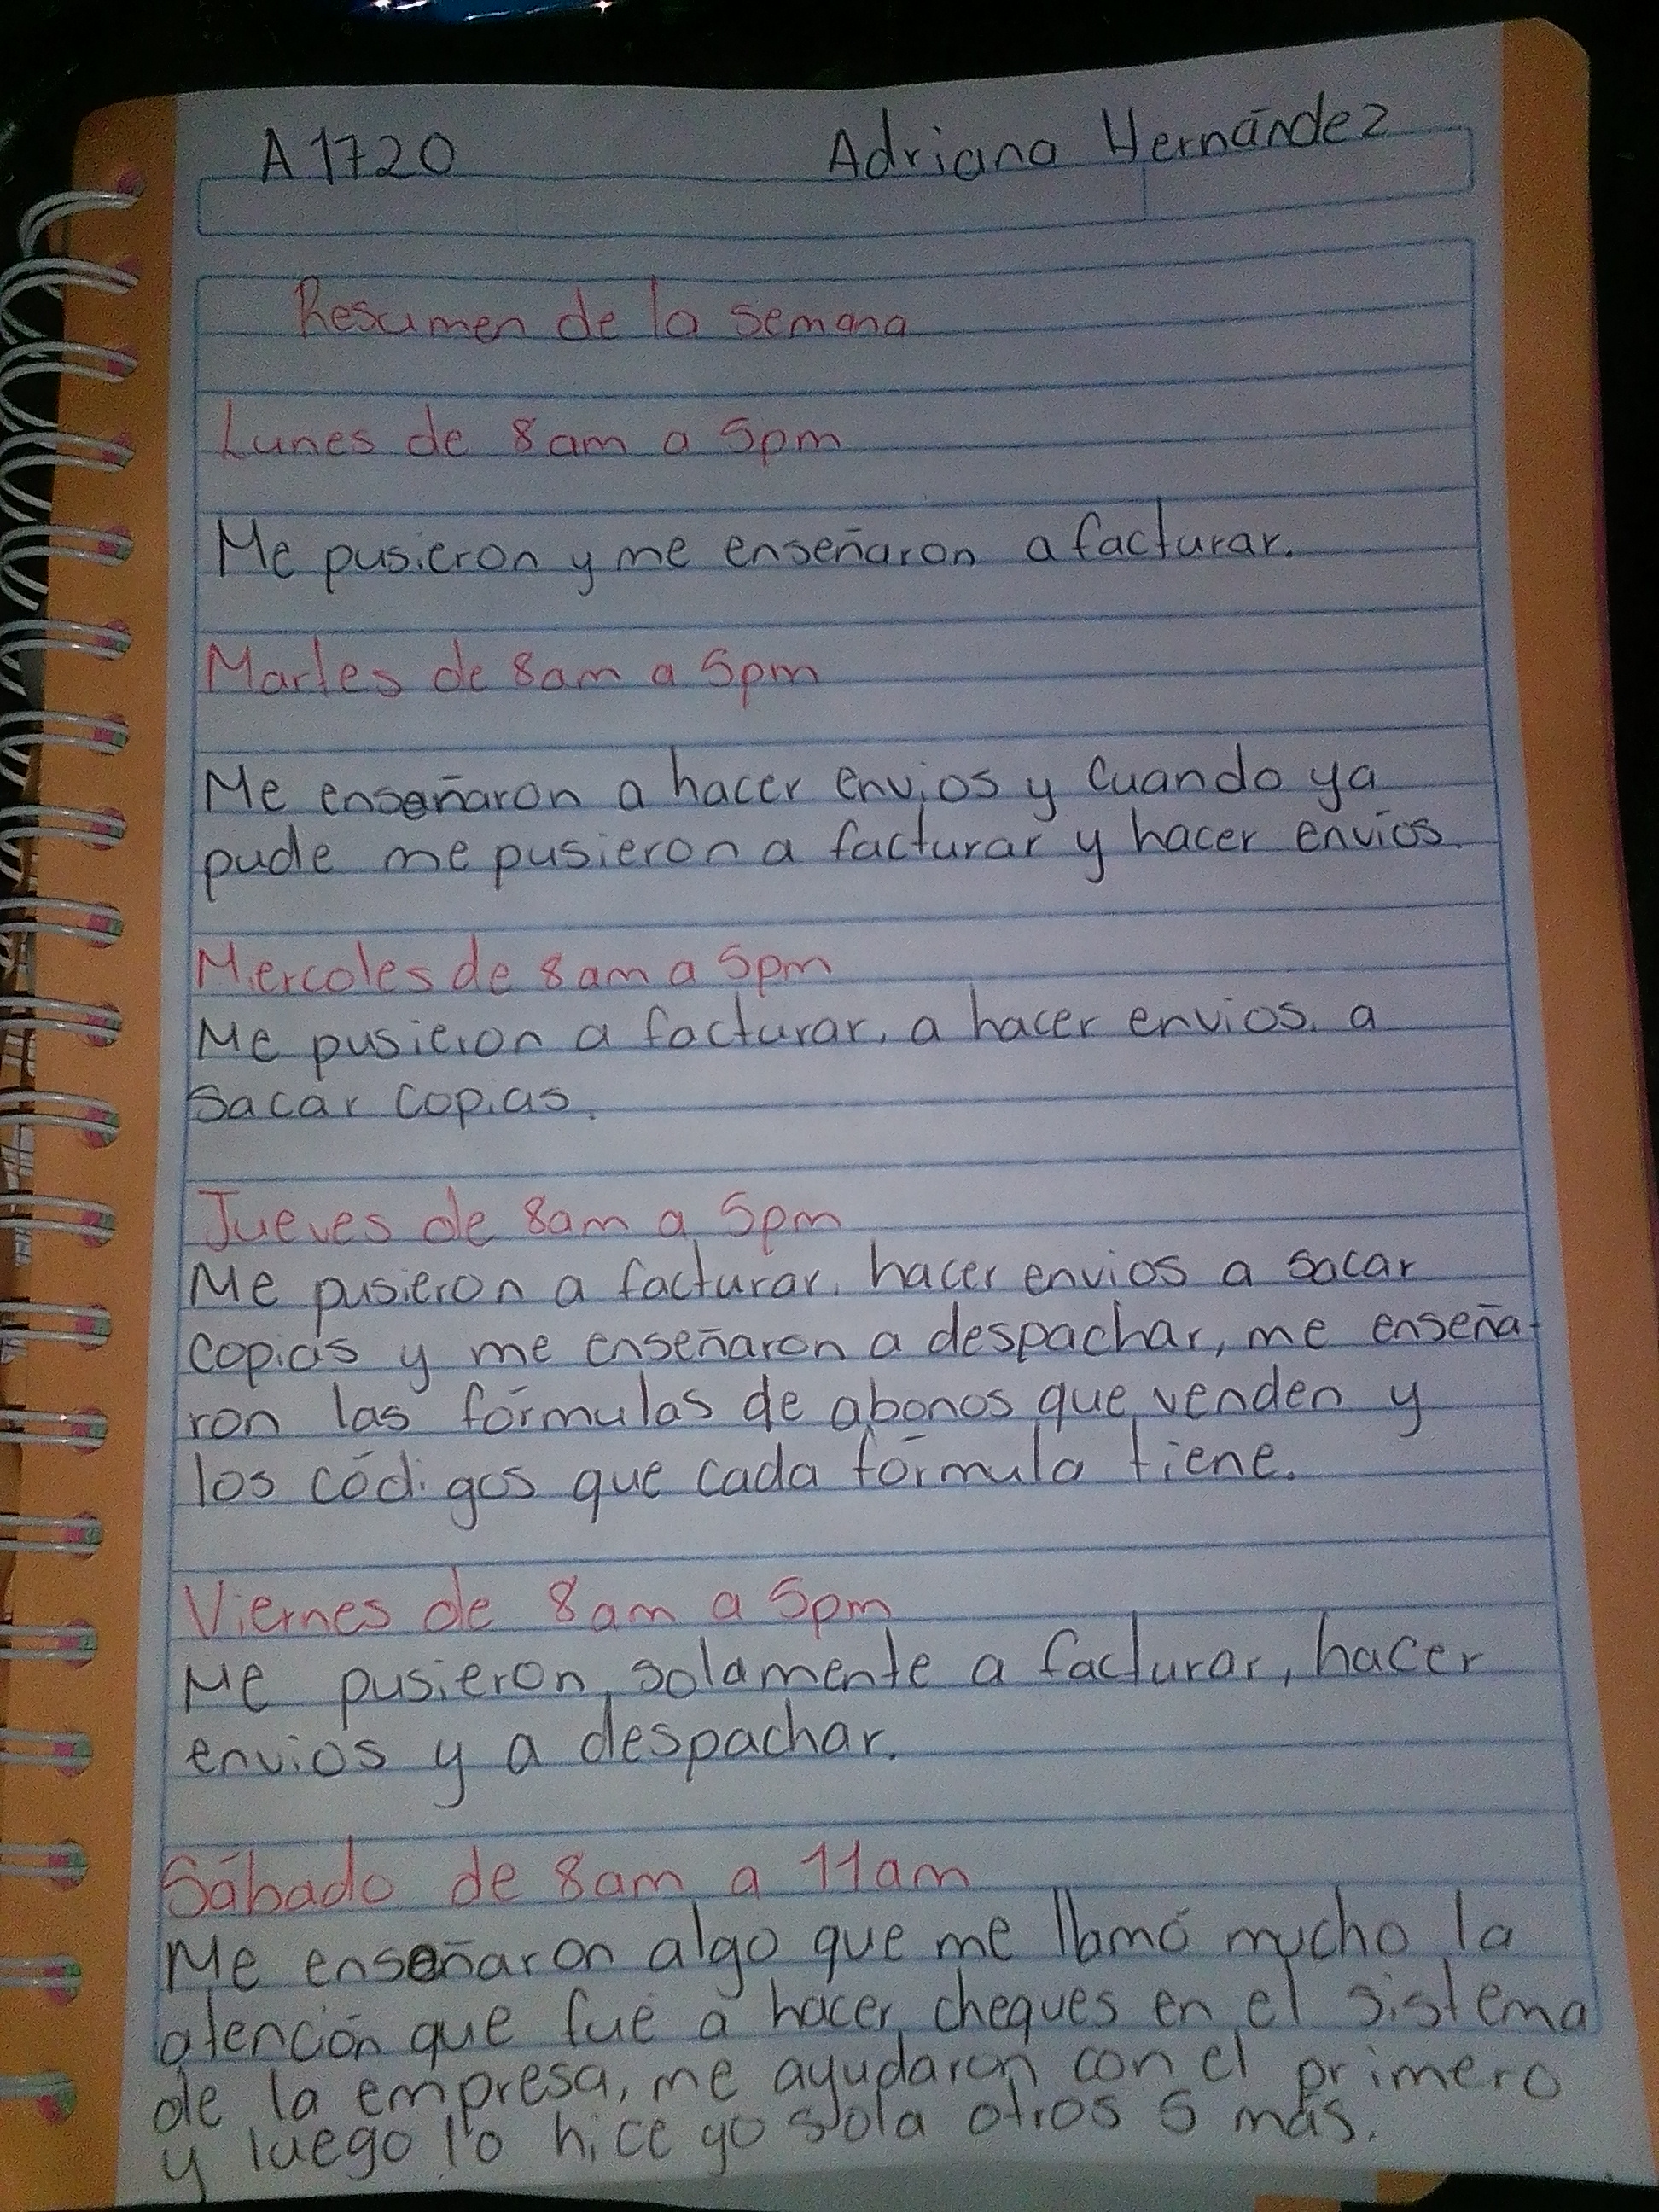 A1720 Adriana Hernández
Resumen de la semana
Lunes de 8am a 5pm
Me pusieron y me enseñaron a facturar.
Martes de 8am a 5pm
Me enseñaron a hacer envios y cuando ya
pude me pusieron a facturar y hacer envíos.
Miercoles de 8am a 5pm
Me pusieron a facturar, a hacer envios, a
sacar copias.
Jueves de 8am a 5pm
Me pusieron a facturar, hacer envios a sacar
copias y me enseñaron a despachar, me enseña-
ron las fórmulas de abonos que venden y
los códigos que cada fórmula tiene.
Viernes de 8am a 5pm
Me pusieron solamente a facturar, hacer
envios y a despachar.
Sábado de 8am a 11am
Me enseñaron algo que me llamó mucho la
atención que fué a hacer cheques en el sistema
de la empresa, me ayudaron con el primero
y luego lo hice yo sola otros 5 más.